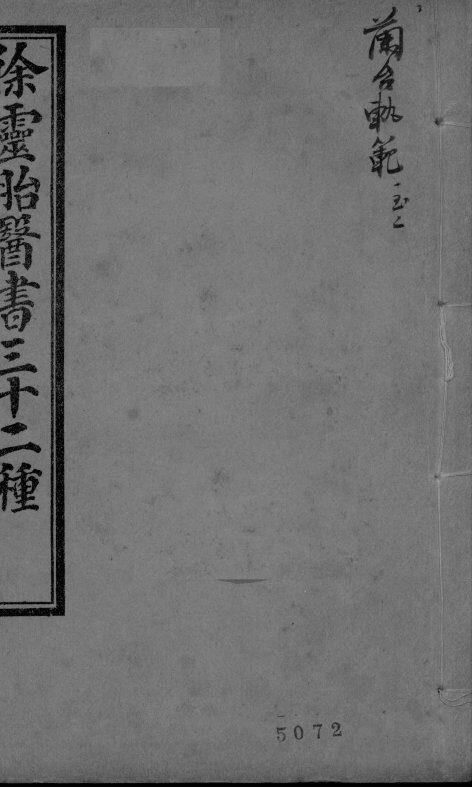 蘭台軌範
一至二
徐靈胎醫書三十二種
5072